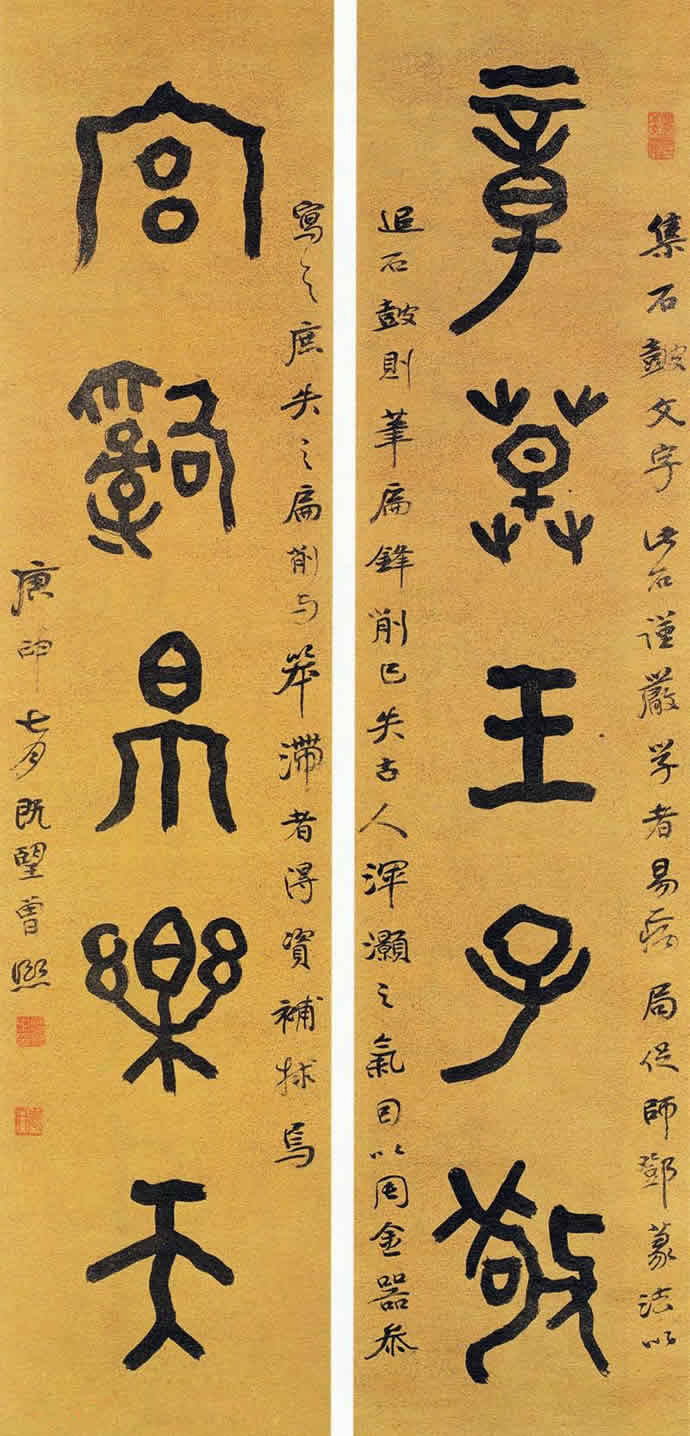 章草王子敬
宮辭帛樂天
集石鼓文字此石謹嚴学者易病局促師鄧篆法以
追石鼓則筆扁鋒削已失古人渾灝之氣因以周金器叅
寫之庶失之扁削与笨滯者得資補捄焉
庚申七月既望曾熙